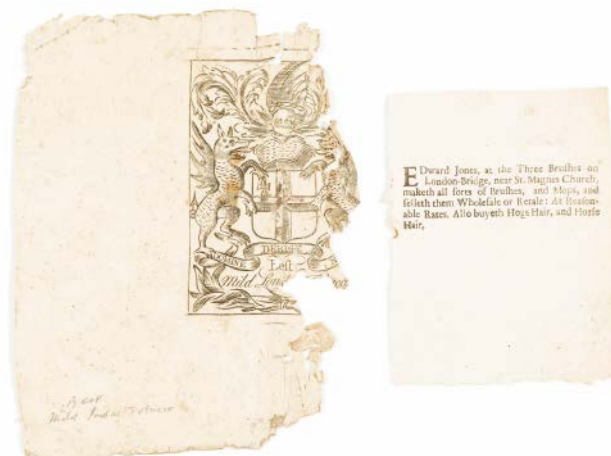 DOMINE DIRIGE
Best
Mild Lond
Best
Mild London Tobacco
EDward Jones, at the Three Bruſhes on
London-Bridge, near St. Magnus Church,
maketh all ſorts of Bruſhes, and Mops, and
ſelleth them Wholeſale or Retale: At Reaſon-
able Rates. Alſo buyeth Hogs Hair, and Horſe
Hair,